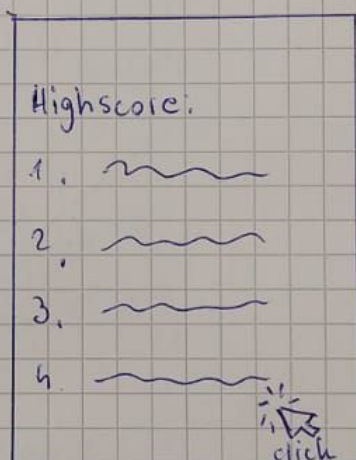 Highscore:
1.
2.
3.
4.
click